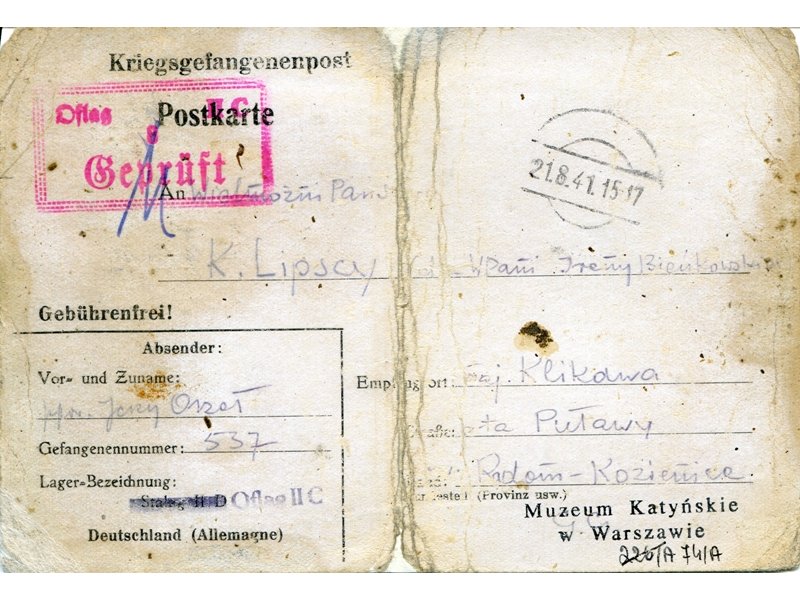 Kriegsgefangenenpost
Oflag II C
Postkarte
Geprüft
9
An Wielmożni Pań
K. Lipscy W Pani Ireny Bieńkowskie
21.8.41.15-17
Gebührenfrei!
Absender:
Vor- und Zuname:
ppor. Jerzy Orzeł
Gefangenennummer: 537
Lager-Bezeichnung:
Stalag II D Oflag II C
Deutschland (Allemagne)
Empfangsort: maj. Klikawa
Straße: pta Puławy
Radom-Kozienice
(Provinz usw.)
Muzeum Katyńskie
w Warszawie
226/A 74/A